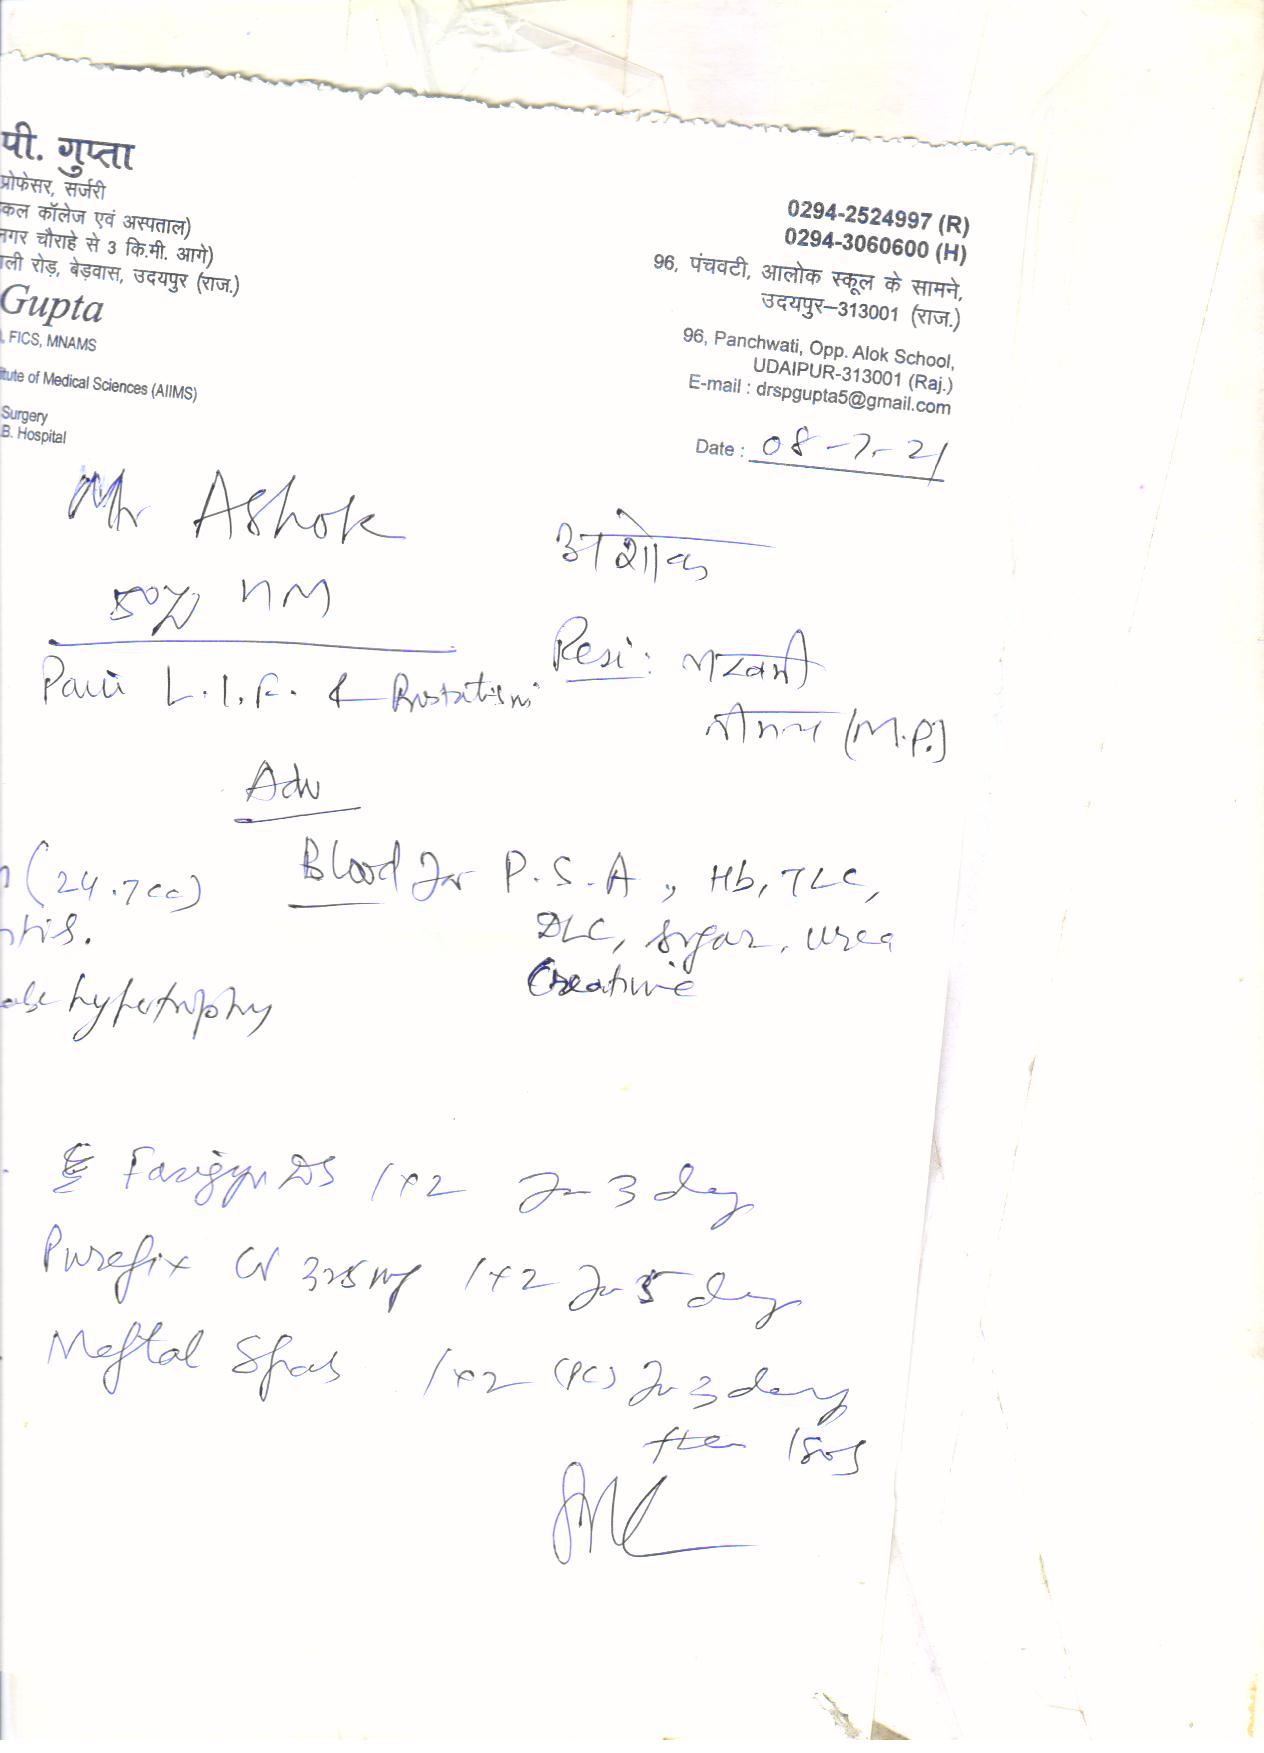 पी. गुप्ता
प्रोफेसर, सर्जरी
कल कॉलेज एवं अस्पताल)
नगर चौराहे से 3 कि.मी. आगे)
ली रोड़, बेड़वास, उदयपुर (राज.)
Gupta
, FICS, MNAMS
itute of Medical Sciences (AIIMS)
Surgery
B. Hospital
0294-2524997 (R)
0294-3060600 (H)
96, पंचवटी, आलोक स्कूल के सामने,
उदयपुर–313001 (राज.)
96, Panchwati, Opp. Alok School,
UDAIPUR-313001 (Raj.)
E-mail : drspgupta5@gmail.com
Date : 08-7-21
Mr Ashok अशोक
50 M
Pain L.I.F. & Prostatism Resi:
(M.P.)
Adv
(24.7cc) Blood for P.S.A, Hb, TLC,
DLC, sugar, urea
Creatinine
hypertrophy
Fasigyn DS 1x2 for 3 day
Purefix CV 325mg 1x2 for 5 day
Meftal Spas 1x2 (PC) for 3 day